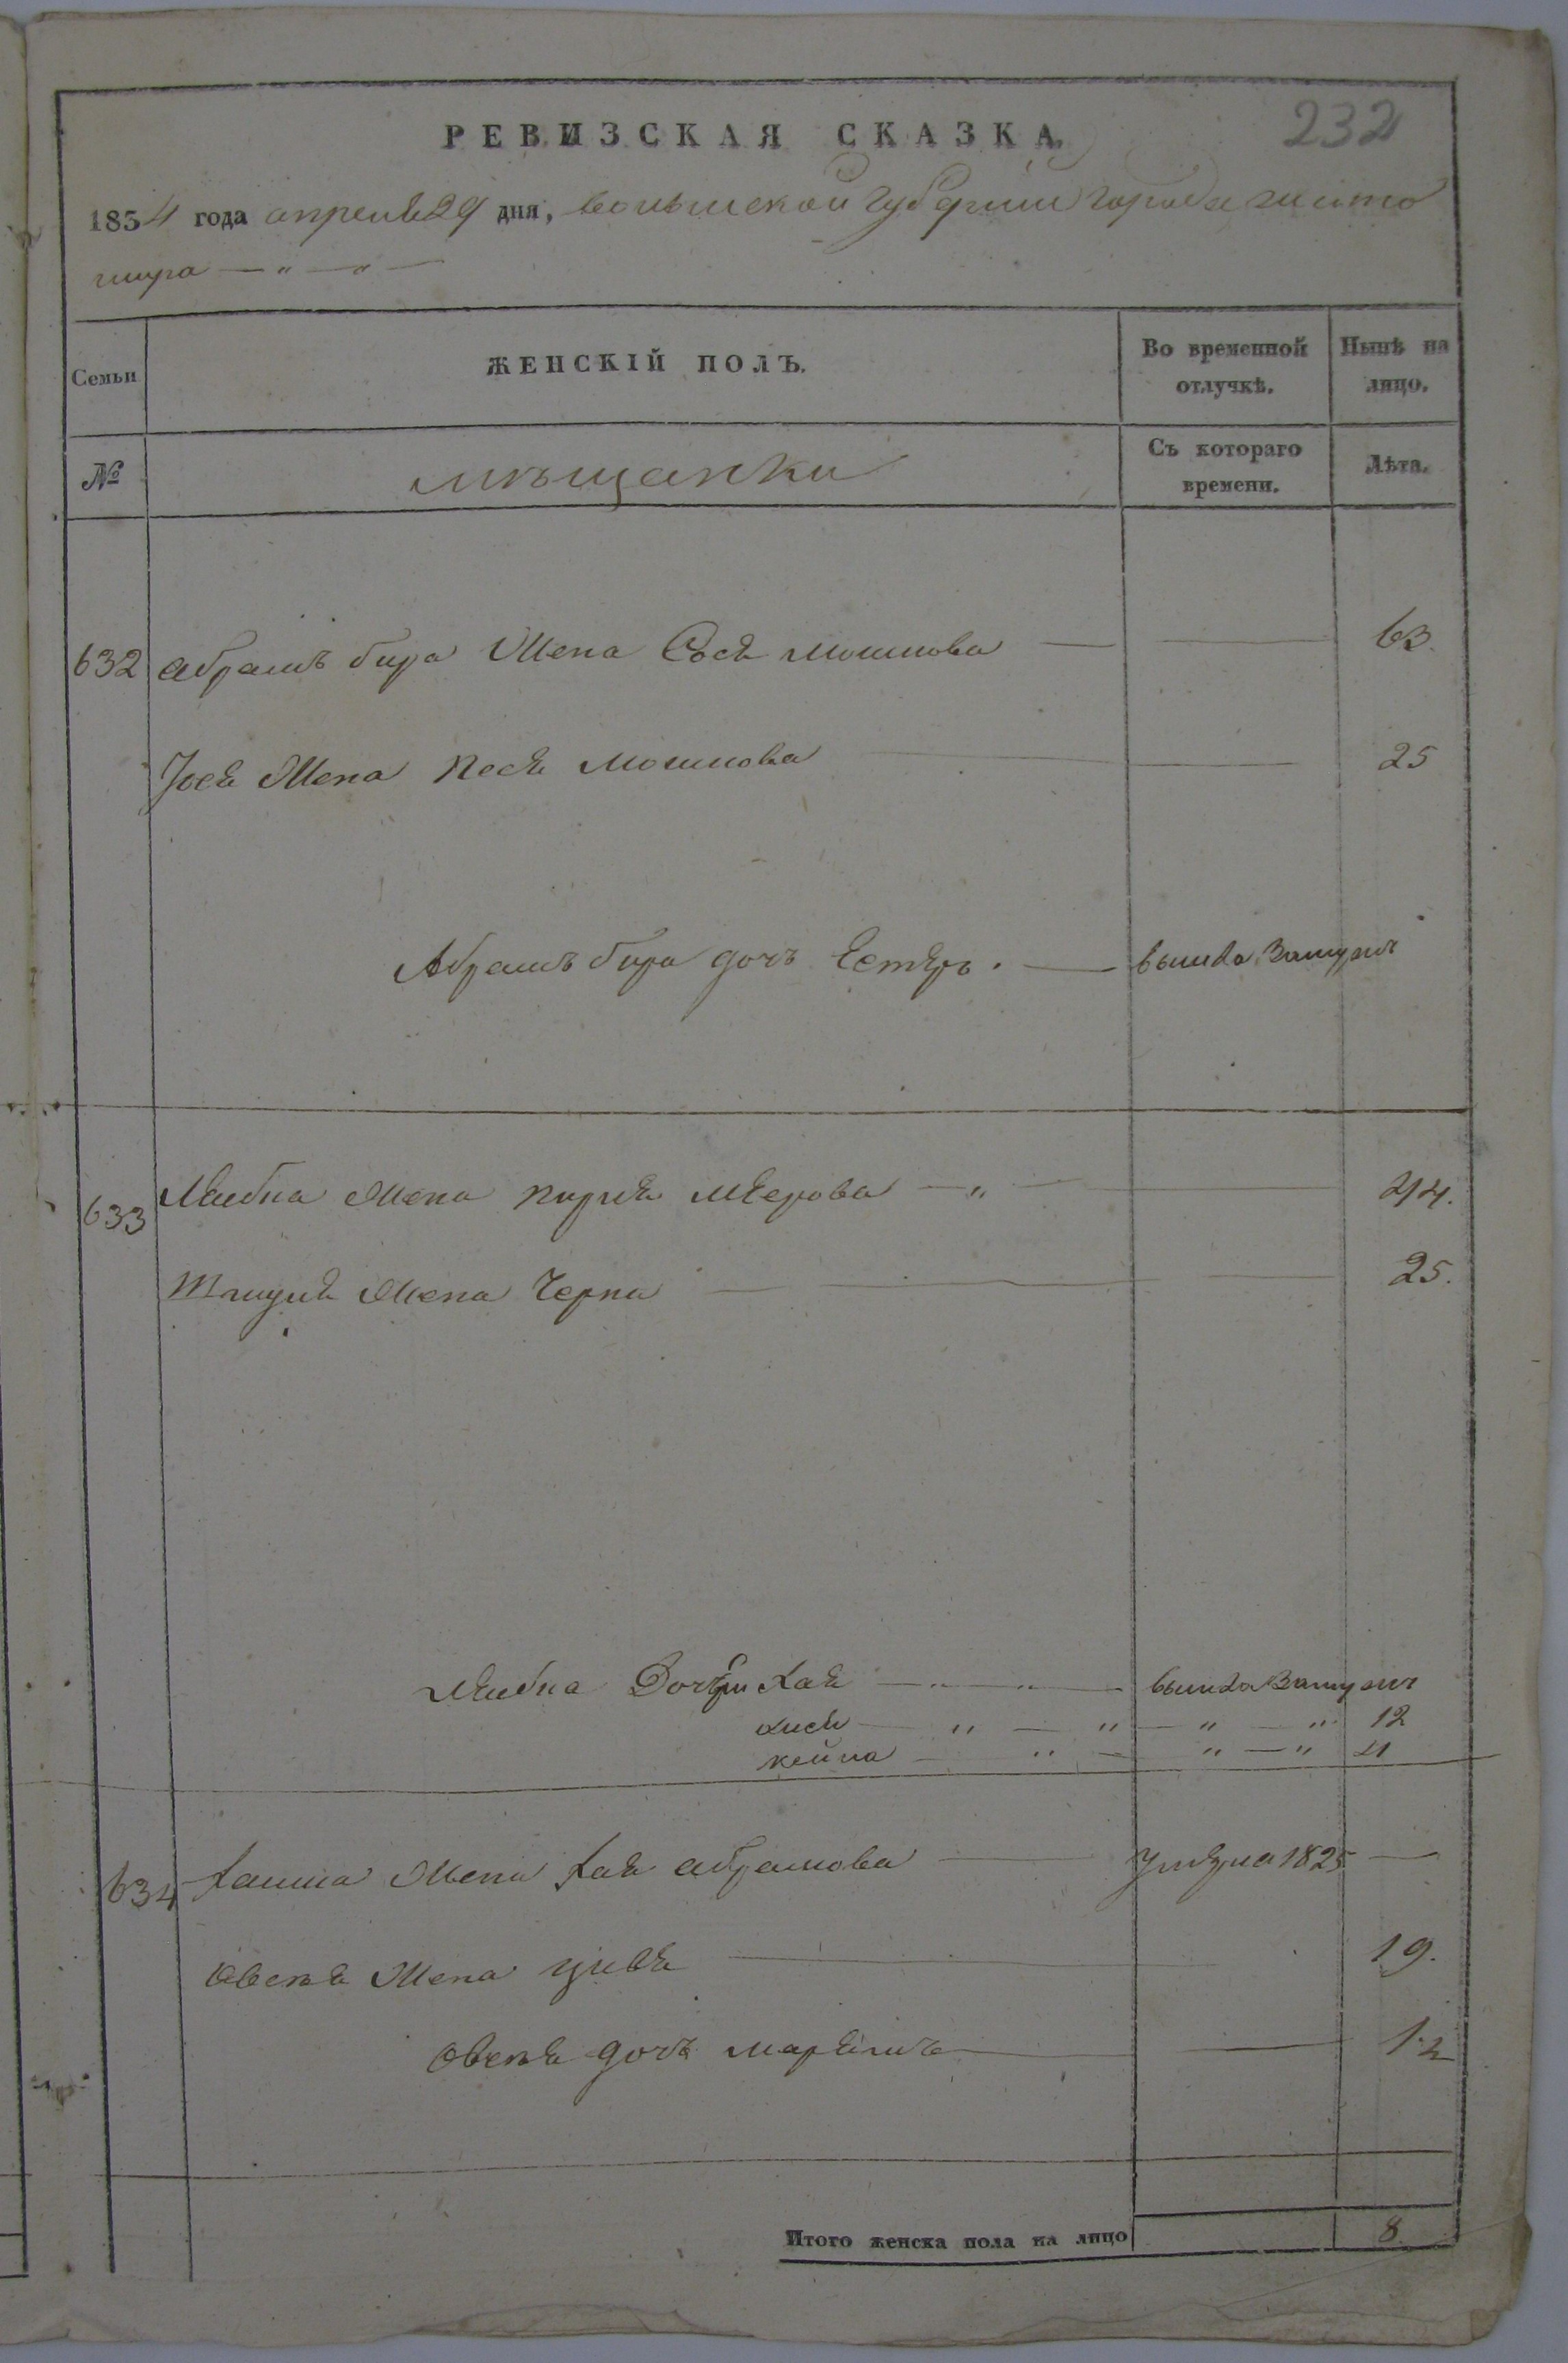 232
РЕВИЗСКАЯ СКАЗКА.
1834 года апреля 29 дня, волынской губернии города жито
мира — „ — „ —
Семьи
ЖЕНСКІЙ ПОЛЪ.
Во временной отлучкѣ.
Нынѣ на лицо.
№
мѣщанки
Съ котораго времени.
Лѣта.
632 Абрамъ бира Жена Сося мошкова — — 63.
Іося Жена Песя мошкова — 25
Абрамъ бира дочь Естеръ. — вышла Замужъ
633 Лейбна Жена мѣерова — „ — 44.
Жена Черна — 25.
Лейбна Дочери Хая — „ — „ — вышла Замужъ
„ — „ — „ — „ 12
кейна — „ — „ — „
634 Жена Хая абрамова — умерла 1825 —
Овсея Жена цивя — 19.
Овсея дочь марьямъ — 1/2
Итого женска пола на лицо 8.